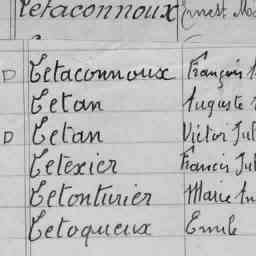 Tetaconnoux Ernest
D Tetaconnoux François
Tetan Auguste
D Tetan Victor Jul
Tetexier Francis Jul
Tetonturier Marie
Tetoqueux Emile